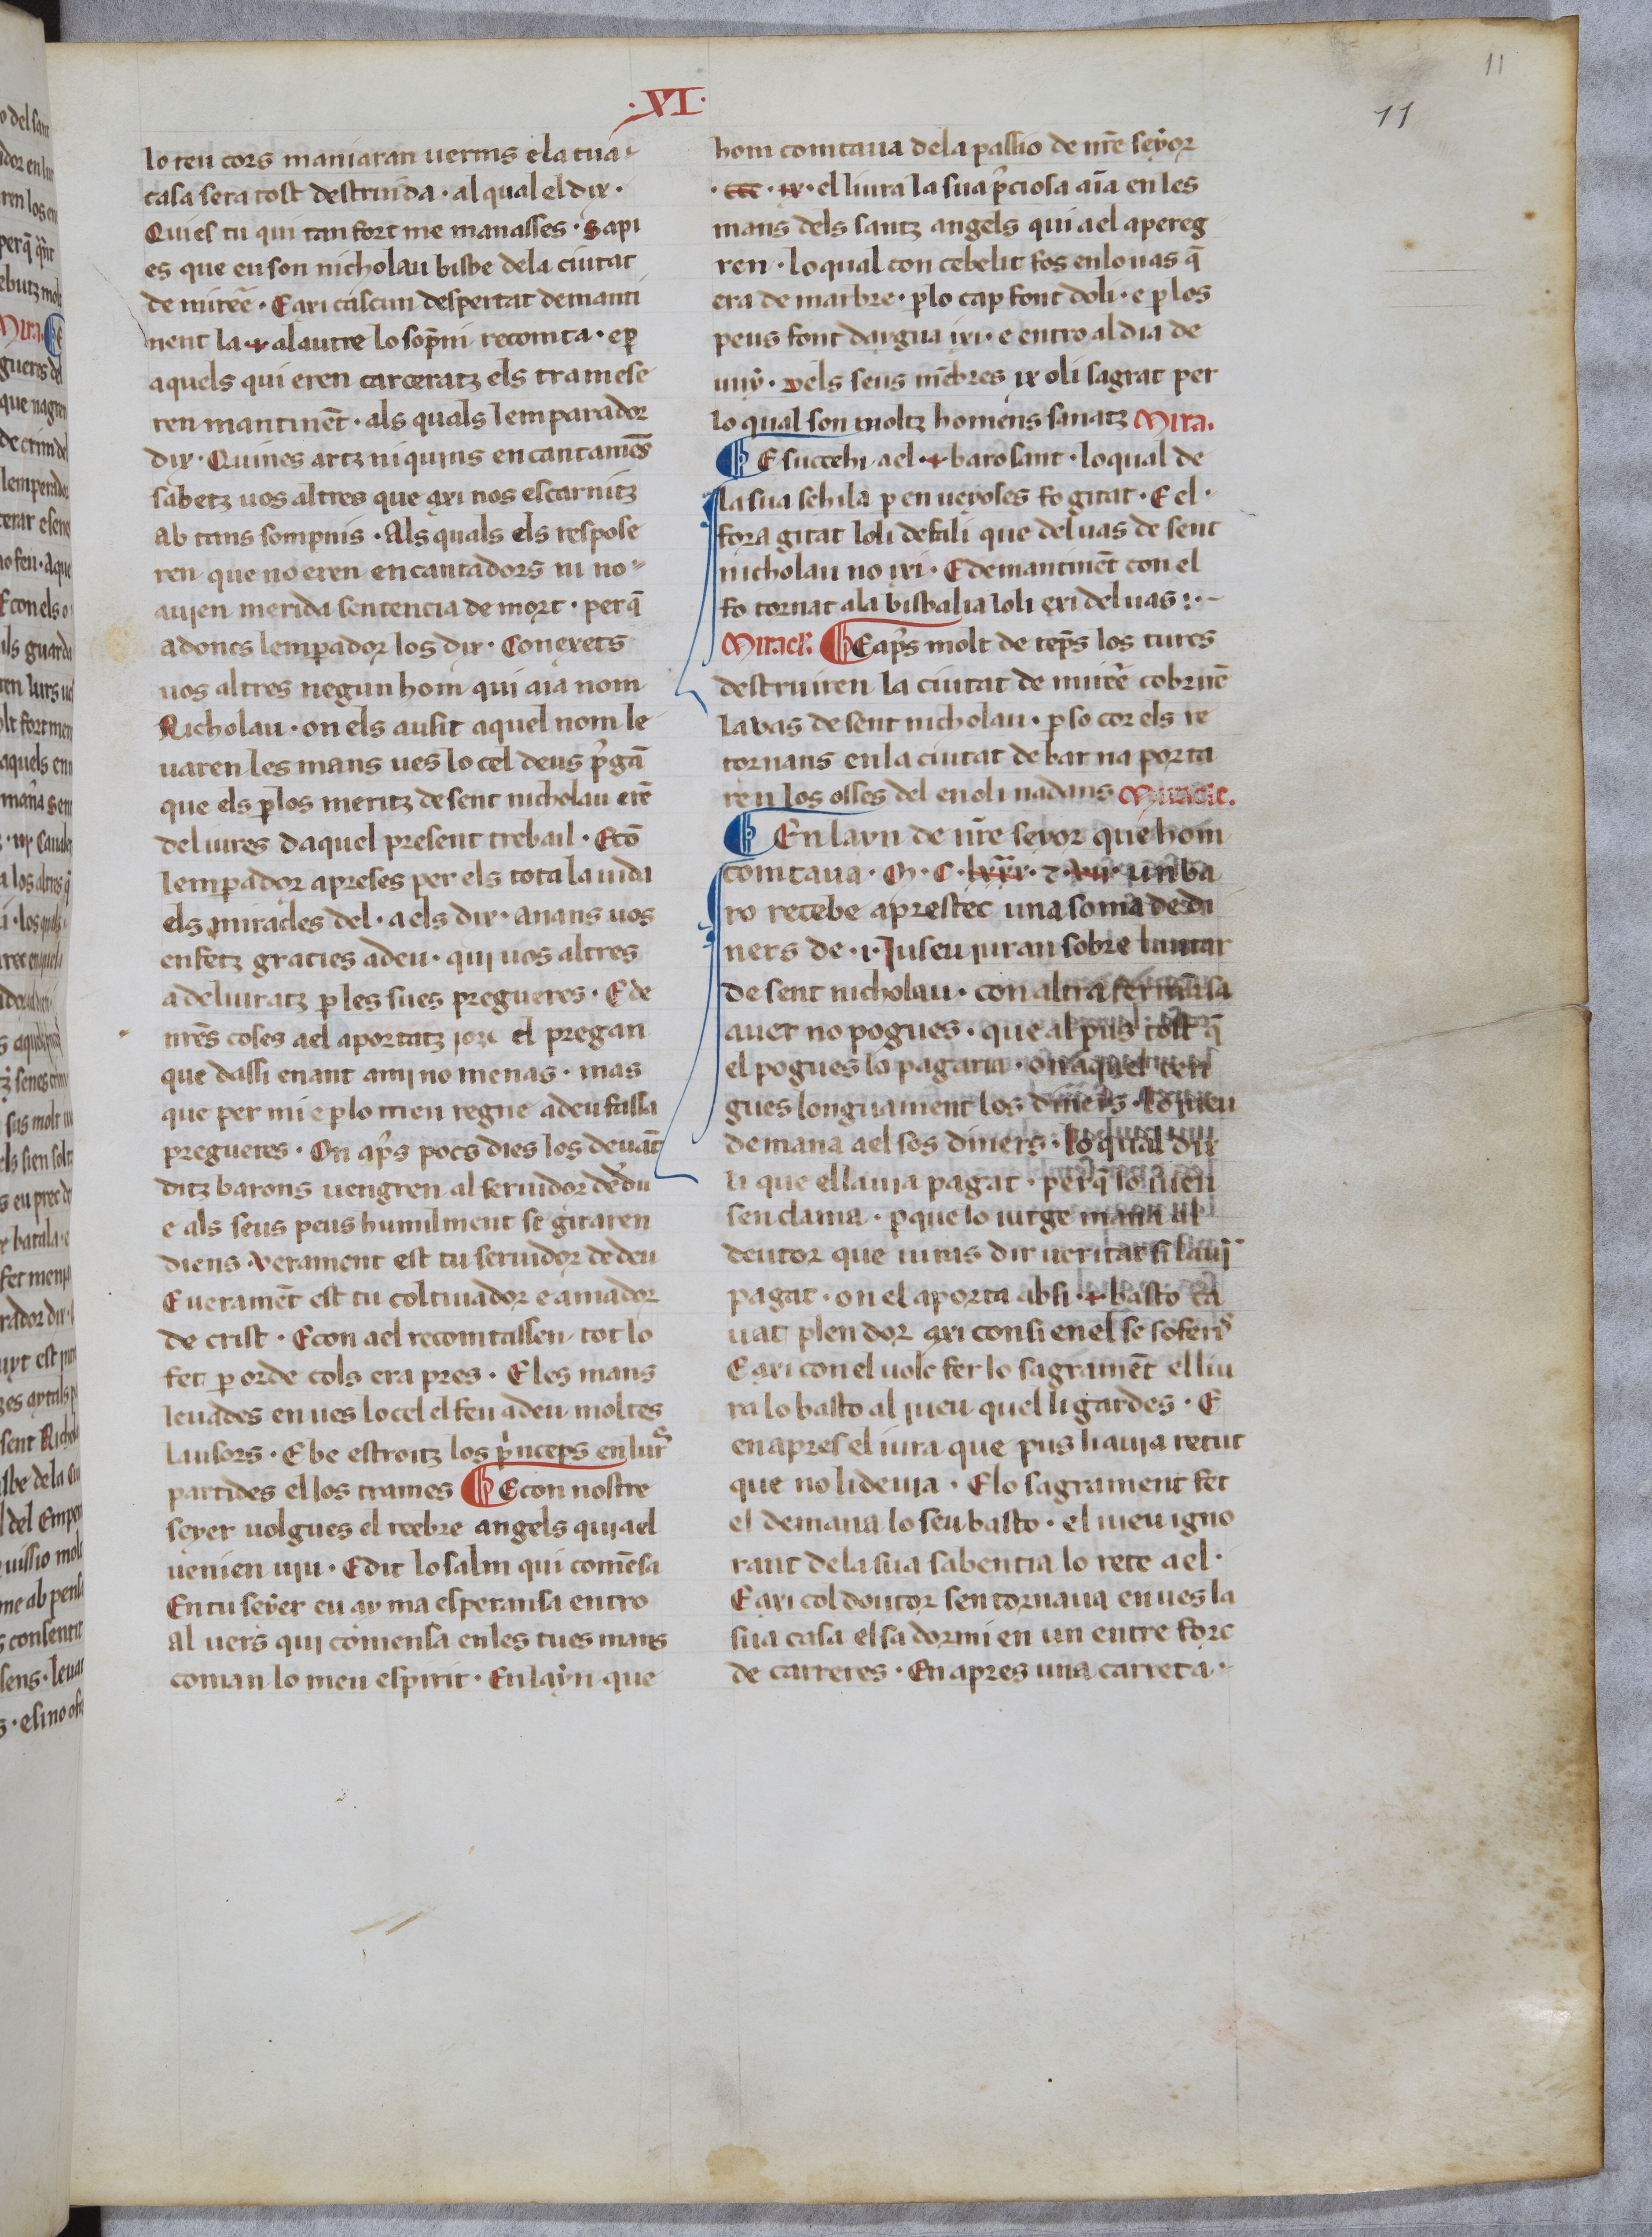 11
11
·VI·
lo teu cors maniaran uerms e la tua
casa sera tost destruida · al qual el dix ·
Qui es tu qui tan fort me manasses · Sapi
es que eu son nicholau bisbe dela ciutat
de mirrē · E axi cascun despertat demanti
nent la · j · al autre lo sop̄ni recomta · e ꝑ
aquels qui eren carceratz els tramese
ren mantinēt · als quals lemparador
dix · Quines artz ni quins encantamēs
sabetz uos altres que axi nos escarnitz
ab tans sompnis · Als quals els respose
ren que no eren encantadors ni no
auien merida sentencia de mort · per q̄
adoncs lemꝑador los dix · Conexets
uos altres negun hom qui aia nom
Nicholau · on els ausit aquel nom le
uaren les mans ues lo cel deus p̄gā
que els ꝑ los meritz de sent nicholau erē
deliures daquel present trebail · E cō
lemꝑador apreses per els tota la uida
els miracles del · a els dix · anans uos
en fetz gracies adeu · qui uos altres
a deliuratz ꝑ les sues pregueres · E de
mr̄es coses ael aportatz ioxe el pregan
que dassi enant amj no menas · mas
que per mi e ꝑ lo meu regne adeu fassa
pregueres · On ap̄s pocs dies los deuāt
ditz barons uengren al seruidor de deu
e als seus peus humilment se gitaren
diens · Verament est tu seruidor de deu
E ueramēt est tu coltiuador e amador
de crist · E con ael recomtassen tot lo
fet ꝑ orde cols era pres · E les mans
leuades en ues lo cel el feu adeu moltes
lausors · E be estroitz los p̄nceps en lurs
partides el los trames ¶ E con nostre
seyer uolgues el reebre angels qui ael
uenien uiu · E dit lo salm qui comēsa
En tu seyer eu ay ma esperansa entro
al uers qui comensa en les tues mans
coman lo meu espirit · En layn que
hom comtaua dela passio de nr̄e seyor
· ccc · ix · el liura la sua p̄ciosa aīa en les
mans dels santz angels qui ael apereg
ren · lo qual con cebelit fos en lo uas q̄
era de marbre · ꝑ lo cap font doli · e ꝑ los
peus font daygua ixi · e entro al dia de
uuy · dels seus mēbres ix oli sagrat per
lo qual son moltz homens sanatz Mira.
¶ E succehi ael · j · baro sant · lo qual de
la sua sehila ꝑ enueyoses fo gitat · E el
fora gitat loli defali que del uas de sent
nicholau no ixi · E demantinēt con el
fo tornat ala bisbalia loli exi del uas :·
Miracle ¶ E ap̄s molt de tep̄s los turcs
destruiren la ciutat de mirrē cobriē
la vas de sent nicholau · ꝑ so cor els re
tornans en la ciutat de bar na porta
ren los osses del en oli nadans Miracle.
¶ En layn de nr̄e seyor que hom
comtaua · M · C · lxxx · 7 · vii · un ba
ro recebe aprestec una soma de di
ners de · i · Juseu iuran sobre lautar
de sent nicholau · con altra fermāsa
auer no pogues · que al pus tost q̄
el pogues lo pagaria · on aquel ten
gues longuament los diners · lo iueu
demana ael sos diners · lo qual dix
li que el lauia pagat · per q̄ lo iueu
sen clama · ꝑ que lo iutge mana al
deutor que iuras dir ueritat si lauj
pagat · on el aporta ab si · j · basto ca
uat plen dor axi con si en el se sofers
E axi con el uolc fer lo sagramēt el liu
ra lo basto al iueu quel li gardes · E
en apres el iura que pus li auia retut
que no li deuia · E lo sagrament fet
el demana lo seu basto · el iueu igno
rant dela sua sabentia lo rete ael ·
E axi col deutor sen tornaua en ues la
sua casa el sa dormi en un entre forc
de carreres · En apres una carreta ·